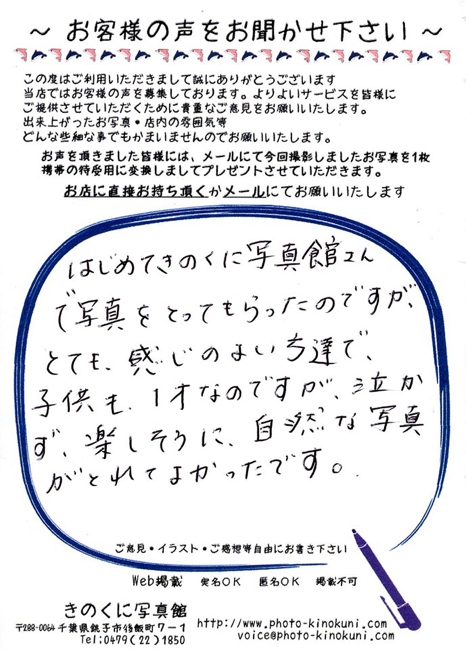 ～ お客様の声をお聞かせ下さい ～
この度はご利用いただきまして誠にありがとうございます
当店ではお客様の声を募集しております。よりよいサービスを皆様に
ご提供させていただくために貴重なご意見をお願いいたします。
出来上がったお写真・店内の雰囲気等
どんな些細な事でもかまいませんのでお願いいたします。
お声を頂きました皆様には、メールにて今回撮影しましたお写真を1枚
携帯の待受用に変換しましてプレゼントさせていただきます。
お店に直接お持ち頂くかメールにてお願いいたします
はじめてきのくに写真館さん
で写真をとってもらったのですが、
とても、感じのよい方達で、
子供も、1才なのですが、泣か
ず、楽しそうに、自然な写真
がとれてよかったです。
ご意見・イラスト・ご感想等自由にお書き下さい
Web掲載 実名OK 匿名OK 掲載不可
きのくに写真館
〒288-0064 千葉県銚子市後飯町7-1
Tel:0479(22)1850
http://www.photo-kinokuni.com/
voice@photo-kinokuni.com